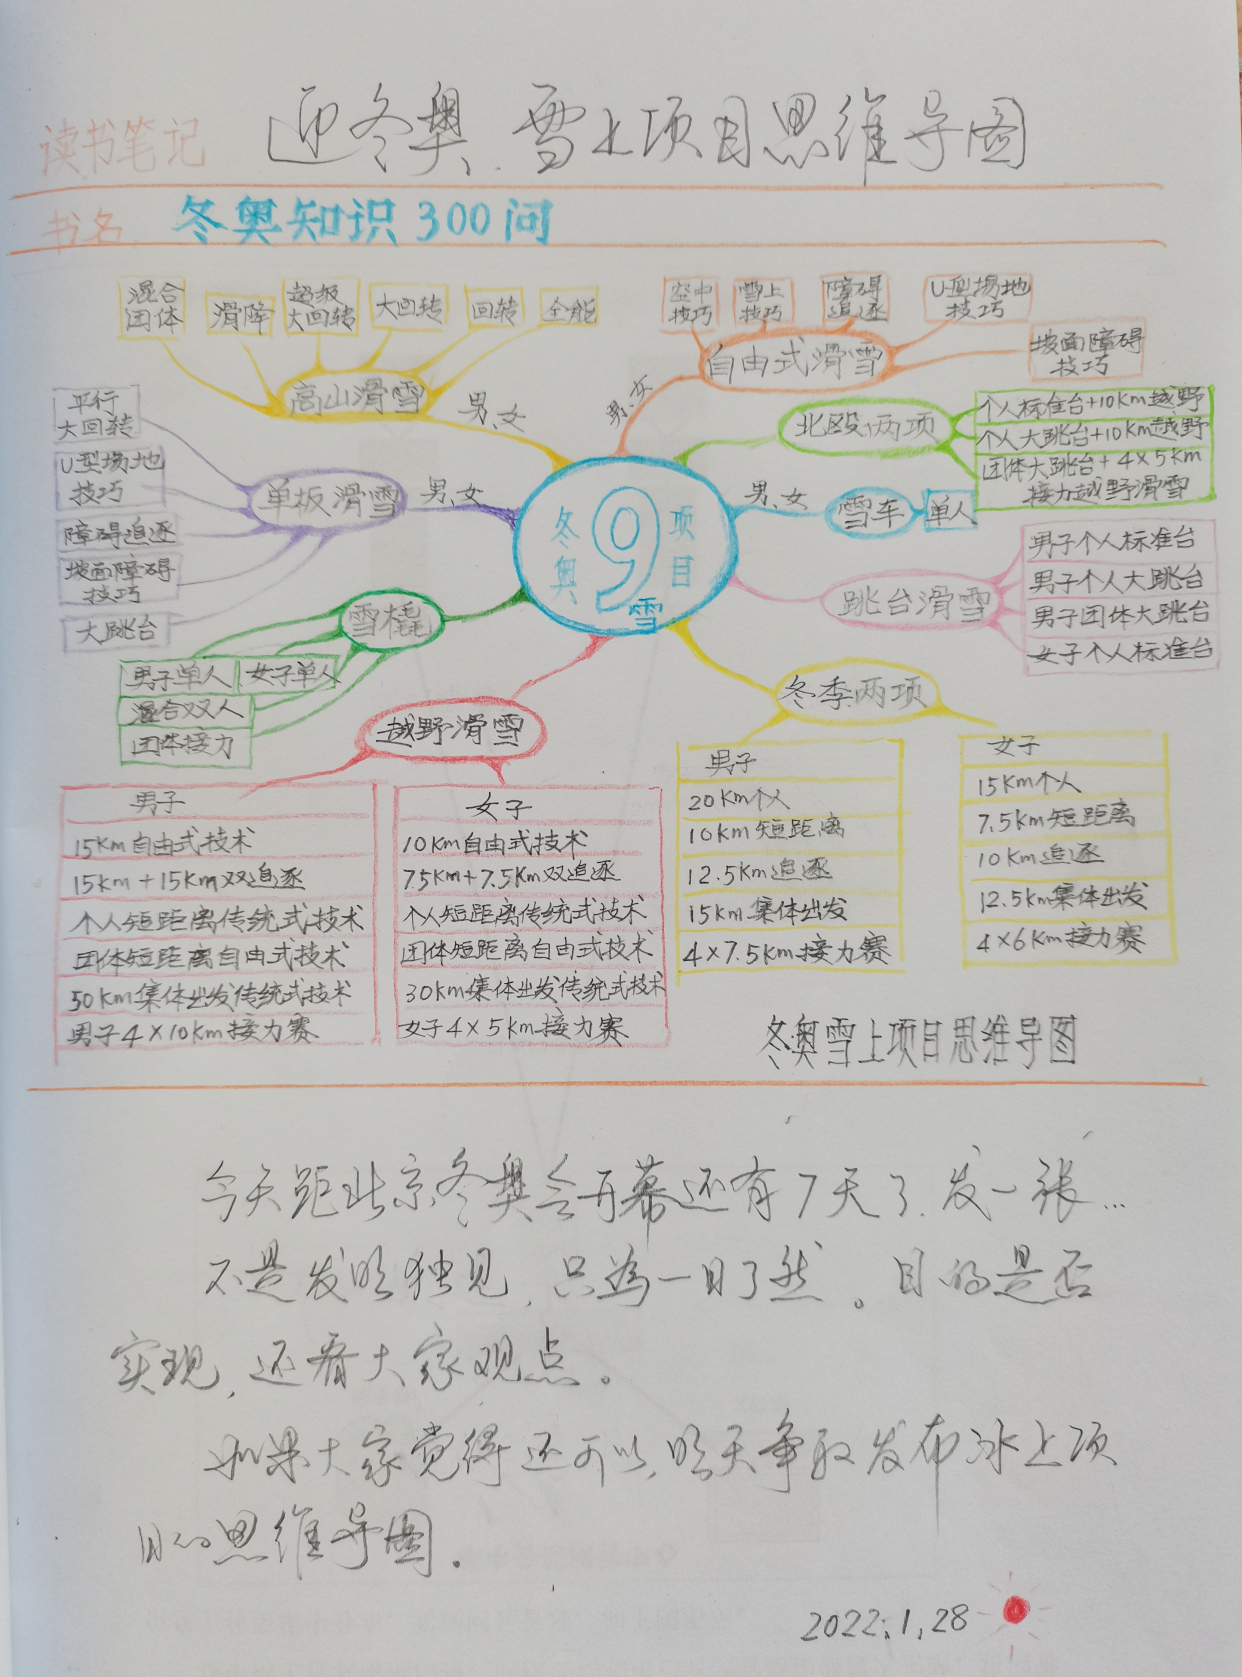 读书笔记 迎冬奥、雪上项目思维导图
书名 冬奥知识300问
混合
团体
滑降
超级
大回转
大回转
回转
全能
高山滑雪
男、女
空中
技巧
雪上
技巧
障碍
追逐
U型场地
技巧
坡面障碍
技巧
自由式滑雪
男、女
平行
大回转
U型场地
技巧
障碍追逐
坡面障碍
技巧
大跳台
单板滑雪
男、女
北欧两项
个人标准台+10Km越野
个人大跳台+10Km越野
团体大跳台+4×5Km
接力越野滑雪
男、女
雪车
单人
冬奥
9
雪
项目
跳台滑雪
男子个人标准台
男子个人大跳台
男子团体大跳台
女子个人标准台
雪橇
男子单人
女子单人
混合双人
团体接力
越野滑雪
男子
15Km自由式技术
15Km+15Km双追逐
个人短距离传统式技术
团体短距离自由式技术
50Km集体出发传统式技术
男子4×10Km接力赛
女子
10Km自由式技术
75Km+7.5Km双追逐
个人短距离传统式技术
团体短距离自由式技术
30Km集体出发传统式技术
女子4×5Km接力赛
冬季两项
男子
20Km个人
10Km短距离
12.5Km追逐
15Km集体出发
4×7.5Km接力赛
女子
15Km个人
7.5Km短距离
10Km追逐
12.5Km集体出发
4×6Km接力赛
冬奥雪上项目思维导图
今天距北京冬奥会开幕还有7天了,发一张…
不是发明独见,只为一目了然。目的是否
实现,还看大家观点。
如果大家觉得还可以,明天争取发布冰上项
目的思维导图.
2022.1.28